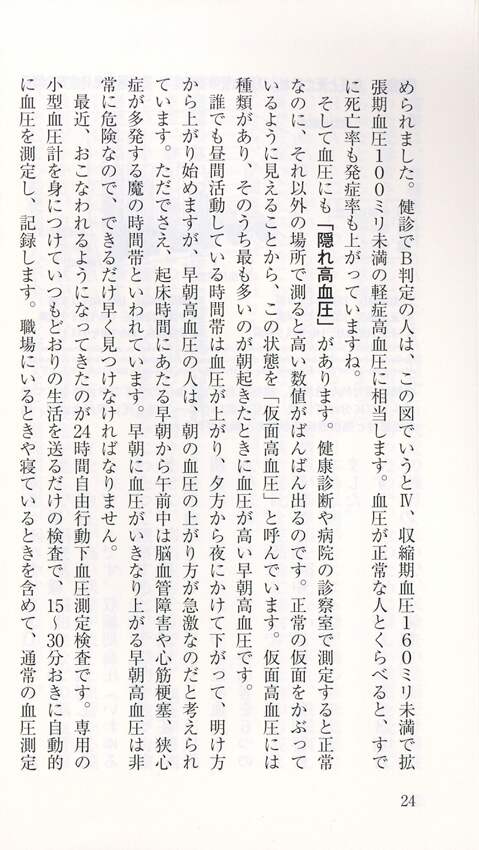 められました。健診でB判定の人は、この図でいうとⅣ、収縮期血圧160ミリ未満で拡
張期血圧100ミリ未満の軽症高血圧に相当します。血圧が正常な人とくらべると、すで
に死亡率も発症率も上がっていますね。
そして血圧にも「隠れ高血圧」があります。健康診断や病院の診察室で測定すると正常
なのに、それ以外の場所で測ると高い数値がばんばん出るのです。正常の仮面をかぶって
いるように見えることから、この状態を「仮面高血圧」と呼んでいます。仮面高血圧には
種類があり、そのうち最も多いのが朝起きたときに血圧が高い早朝高血圧です。
誰でも昼間活動している時間帯は血圧が上がり、夕方から夜にかけて下がって、明け方
から上がり始めますが、早朝高血圧の人は、朝の血圧の上がり方が急激なのだと考えられ
ています。ただでさえ、起床時間にあたる早朝から午前中は脳血管障害や心筋梗塞、狭心
症が多発する魔の時間帯といわれています。早朝に血圧がいきなり上がる早朝高血圧は非
常に危険なので、できるだけ早く見つけなければなりません。
最近、おこなわれるようになってきたのが24時間自由行動下血圧測定検査です。専用の
小型血圧計を身につけていつもどおりの生活を送るだけの検査で、15〜30分おきに自動的
に血圧を測定し、記録します。職場にいるときや寝ているときを含めて、通常の血圧測定
24